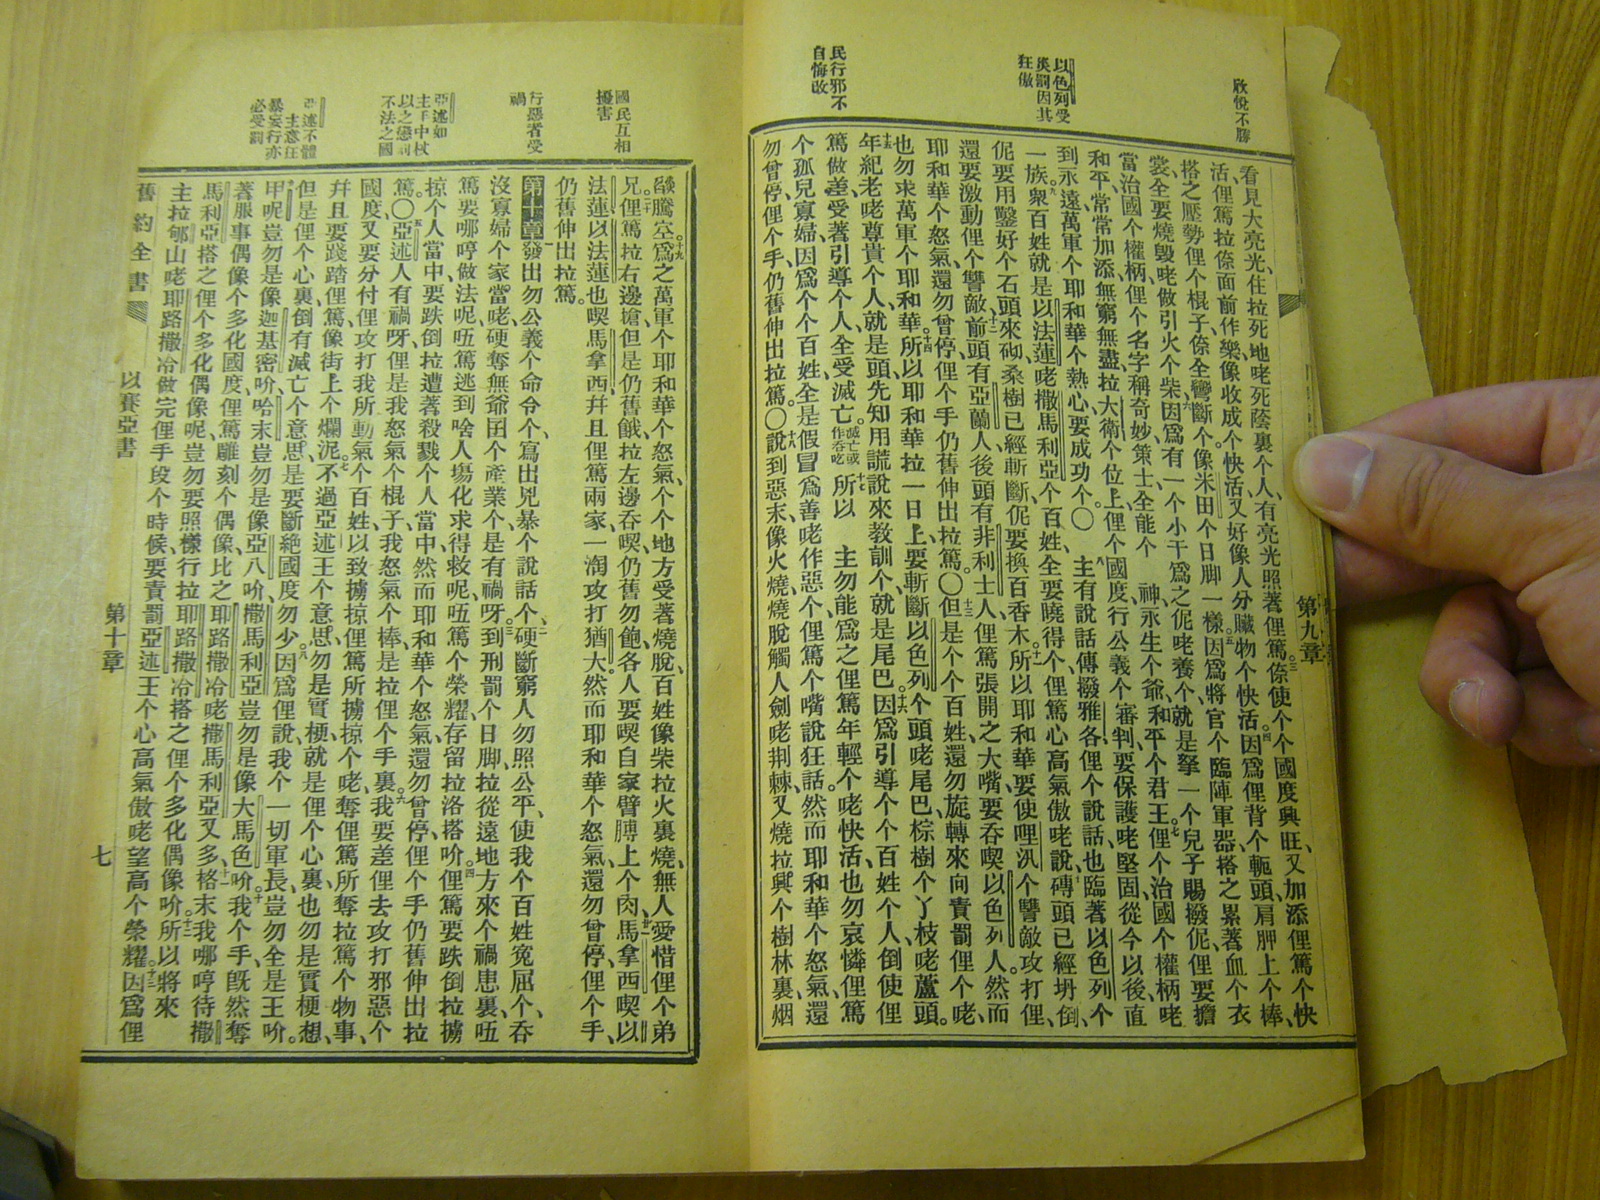 歡悅不勝
以色列受
災罰因其
狂傲
民行邪不
自悔改
看見大亮光、住拉死地咾死蔭裏个人、有亮光照著俚篤。三 㑚使个个國度興旺、又加添俚篤个快
活、俚篤拉㑚面前作樂、像收成个快活、又好像人分贜物个快活。四 因爲俚背个軛頭、肩胛上个棒、
搭之壓勢俚个棍子、㑚全彎斷个、像米田个日脚一樣。五 因爲將官个臨陣軍器、搭之累著血个衣
裳、全要燒毀咾做引火个柴。六 因爲有一个小干爲之伲咾養个、就是拏一个兒子賜撥伲、俚要擔
當治國个權柄、俚个名字稱奇妙、策士、全能个 神、永生个爺、和平个君王。七 俚个治國个權柄咾
和平、常常加添無窮無盡、拉大衛个位上、俚个國度行公義个審判、要保護咾堅固、從今以後直
到永遠、萬軍个耶和華个熱心、要成功个。〇八 主有說話傳撥雅各、俚个說話、也臨著以色列个
一族。九 衆百姓就是以法蓮咾撒馬利亞个百姓、全要曉得个、俚篤心高氣傲咾說、磚頭已經坍倒、
伲要用鑿好个石頭來砌、桑樹已經斬斷、伲要換百香木。十一 所以耶和華要使哩汎个讐敵攻打俚、
還要激動俚个讐敵、十二 前頭有亞蘭人、後頭有非利士人、俚篤張開之大嘴、要吞喫以色列人。然而
耶和華个怒氣、還勿曾停、俚个手仍舊伸出拉篤。〇十三 但是个个百姓、還勿旋轉來向責罰俚个咾、
也勿求萬軍个耶和華。十四 所以耶和華拉一日上、要斬斷以色列个頭咾尾巴、棕樹个丫枝咾蘆頭。
十五 年紀老咾尊貴个人、就是頭、先知用謊說來教訓个、就是尾巴。十六 因爲引導个个百姓个人、倒使俚
篤做差、受著引導个人、全受滅亡。滅亡或作呑吃 十七 所以 主勿能爲之俚篤年輕个咾快活、也勿哀憐俚篤
个孤兒寡婦、因爲个个百姓、全是假冒爲善咾作惡个、俚篤个嘴說狂話。然而耶和華个怒氣、還
勿曾停、俚个手、仍舊伸出拉篤。〇十八 說到惡末、像火燒、燒脫觸人劍咾荆棘、又燒拉興个樹林裏、烟
第九章
國民互相
擾害
行惡者受
禍
亞述如
主手中杖
以之懲罰
不法之國
亞述不體
主意狂
暴妄行亦
必受罰
燄騰空。十九 爲之萬軍个耶和華个怒氣、个个地方受著燒脫、百姓像柴拉火裏燒、無人愛惜俚个弟
兄。二十 俚篤拉右邊搶、但是仍舊餓、拉左邊吞喫、仍舊勿飽、各人要喫自家臂膊上个肉、馬拿西喫以
法蓮、以法蓮也喫馬拿西、幷且俚篤兩家、一淘攻打猶大。然而耶和華个怒氣、還勿曾停、俚个手、
仍舊伸出拉篤。
第十章 發出勿公義个命令个、寫出兇暴个說話个、二 硬斷窮人勿照公平、使我个百姓寃屈个、吞
沒寡婦个家當咾、硬奪無爺囝个產業个、是有禍呀。三 到刑罰个日脚、拉從遠地方來个禍患裏、唔
篤要哪哼做法呢、唔篤逃到啥人塲化求得救呢、唔篤个榮耀、存留拉洛搭吤。四 俚篤要跌倒拉擄
掠个人當中、要跌倒拉遭著殺戮个人當中、然而耶和華个怒氣、還勿曾停、俚个手仍舊伸出拉
篤。〇五 亞述人有禍呀、俚是我怒氣个棍子、我怒氣个棒、是拉俚个手裏。六 我要差俚去攻打邪惡个
國度、又要分付俚攻打我所動氣个百姓、以致擄掠俚篤所擄掠个咾、奪俚篤所奪拉篤个物事、
幷且要踐踏俚篤像街上个爛泥。七 不過亞述王个意思、勿是實梗、就是俚个心裏、也勿是實梗想、
但是俚个心裏、倒有滅亡个意思、是要斷絕國度勿少。八 因爲俚說、我个一切軍長、豈勿全是王吤。
九 甲呢豈勿是像迦基密吤、哈末豈勿是像亞八吤、撒馬利亞豈勿是像大馬色吤。十 我个手、旣然奪
著服事偶像个多化國度、俚篤雕刻个偶像、比之耶路撒冷咾撒馬利亞又多、十一 格末我哪哼待撒
馬利亞搭之俚个多化偶像呢、豈勿要照樣行拉耶路撒冷搭之俚个多化偶像吤。十二 所以將來
主拉郇山咾耶路撒冷做完俚手段个時候、要責罰亞述王个心高氣傲咾望高个榮耀。十三 因爲俚
舊約全書
以賽亞書
第十章
七